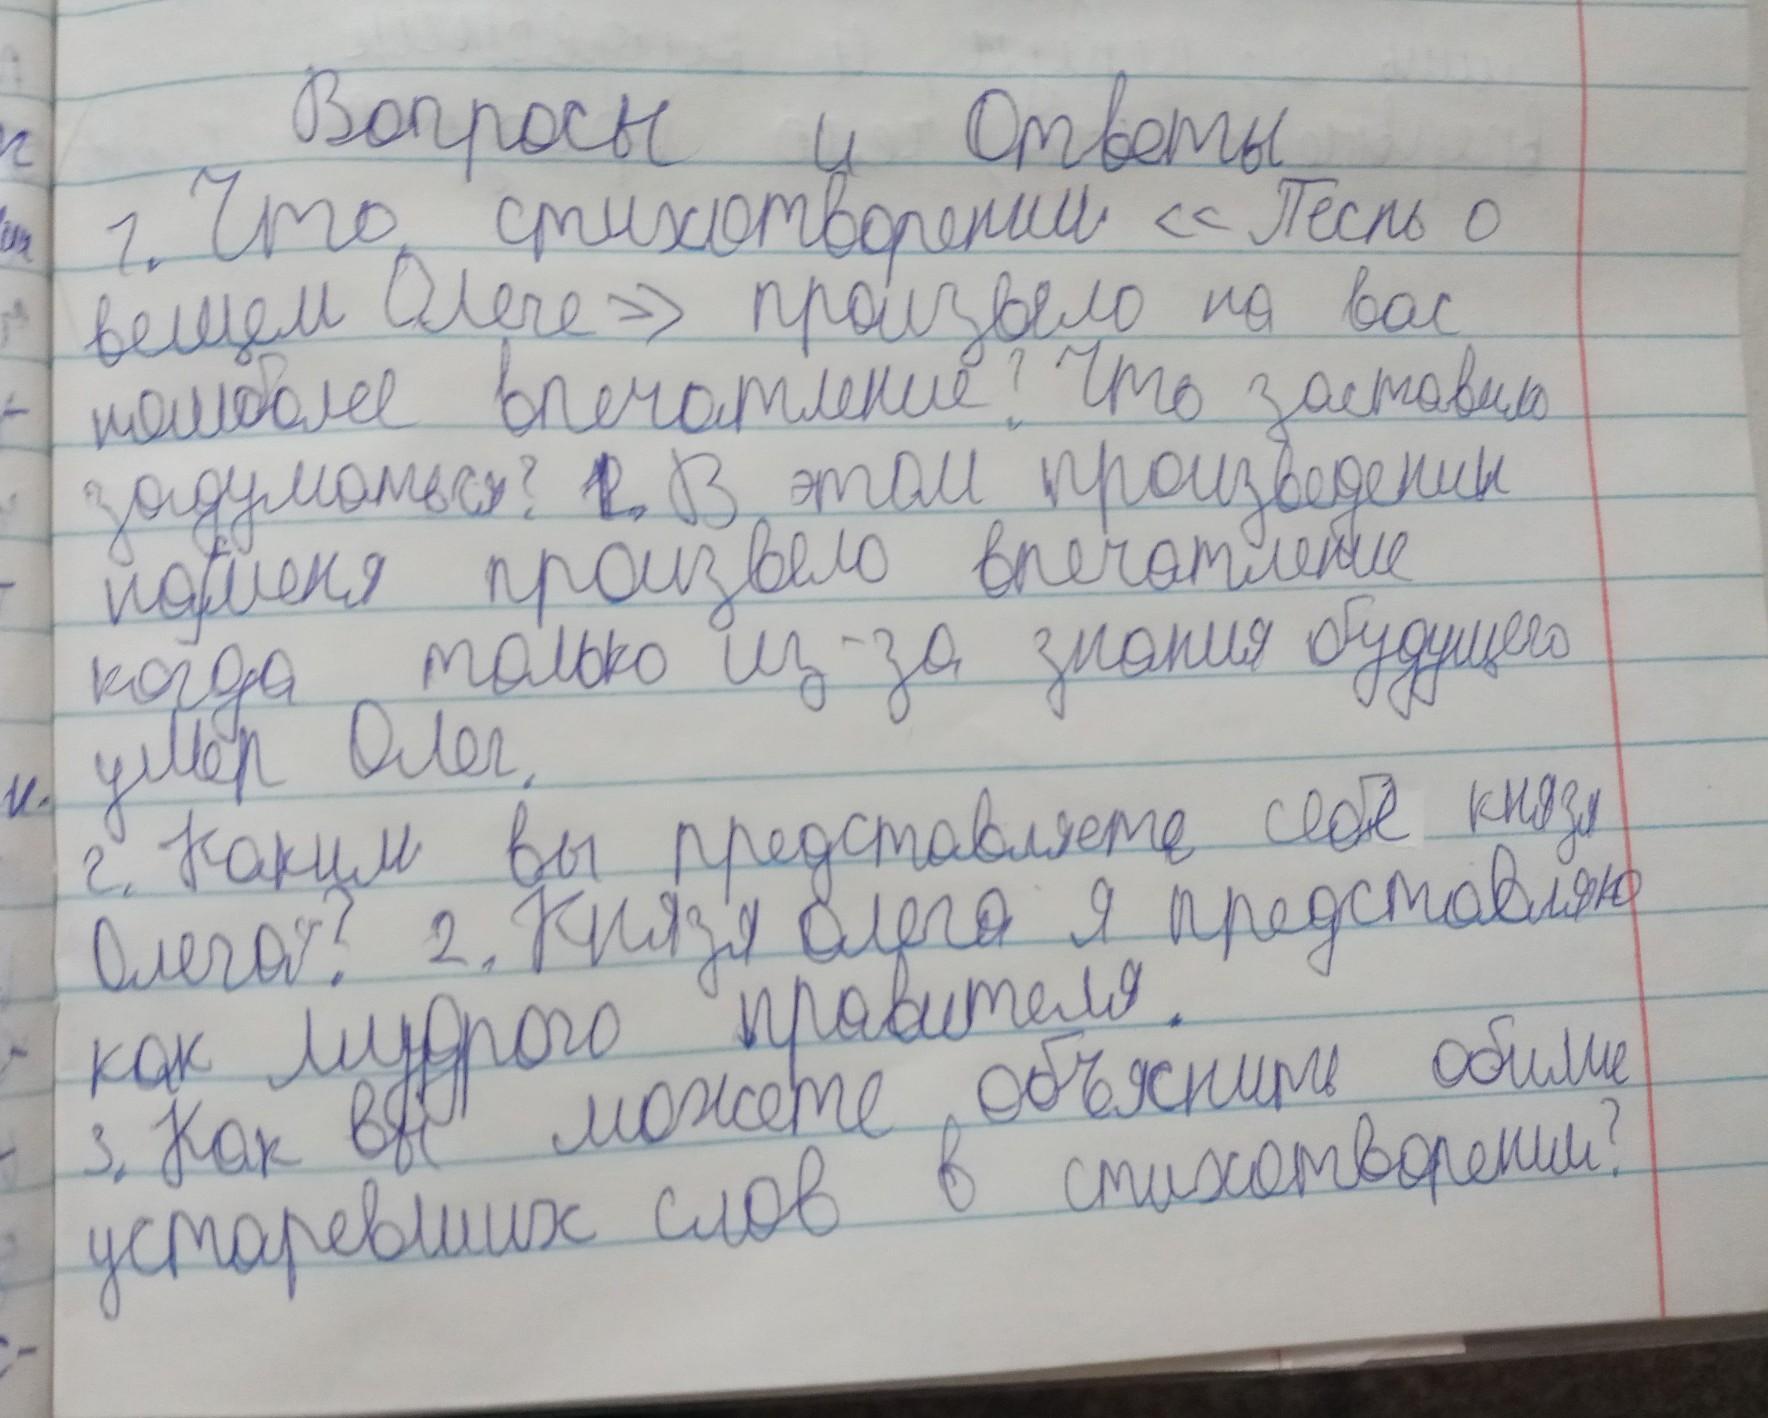 Вопросы и Ответы
1. Что стихотворении << Песнь о
вещем Олеге >> произвело на вас
наиболее впечатление? Что заставило
задуматься? 1. В этом произведении
на меня произвело впечатление
когда только из-за знания будущего
умер Олег.
2. Каким вы представляете себе князя
Олега? 2. Князя Олега я представляю
как мудрого правителя.
3. Как вы можете объяснить обилие
устаревших слов в стихотворении?